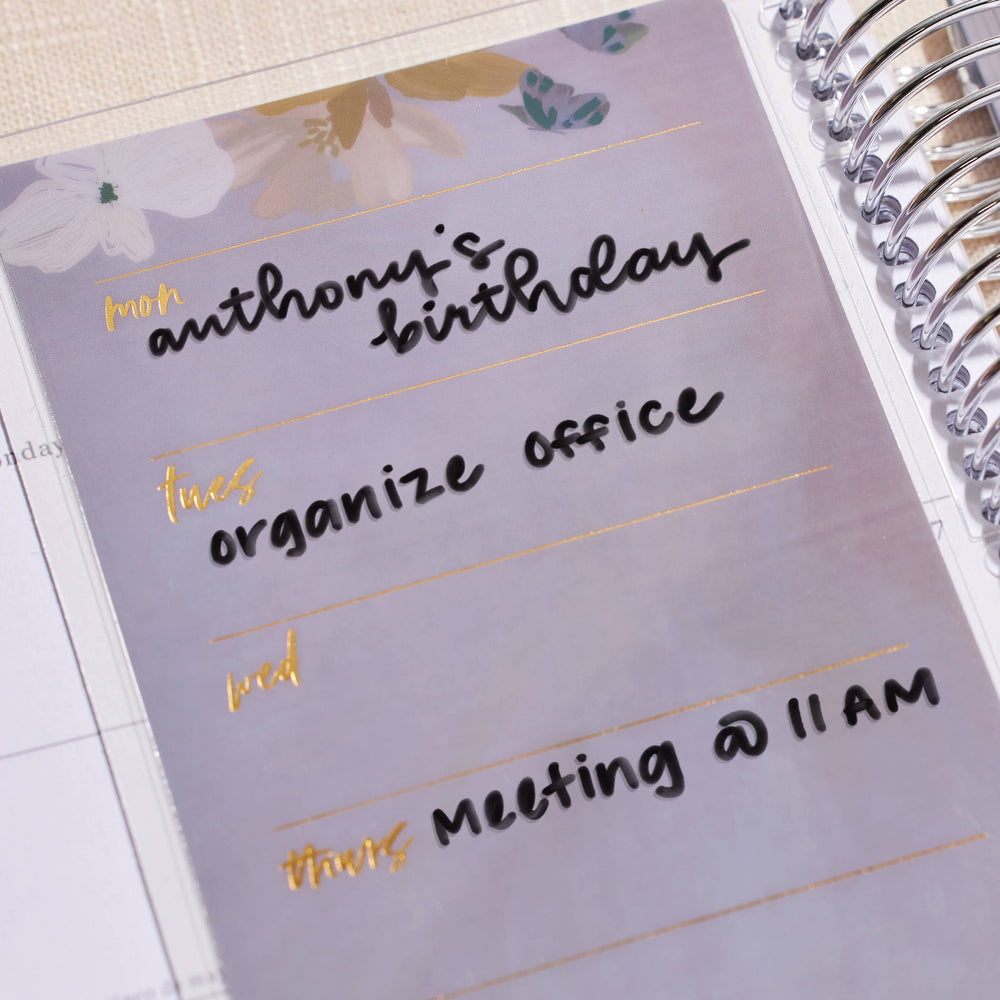 mon
anthony's
birthday
tues
organize office
wed
thurs Meeting @ 11 AM
7